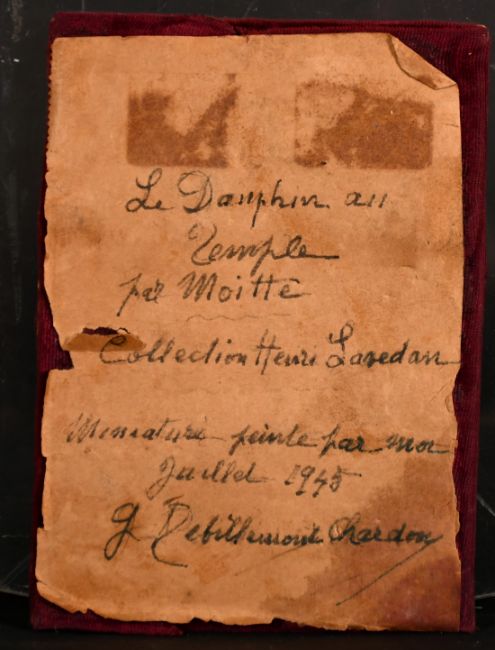 Le Dauphin au
Temple
par Moitte
Collection Henri Lavedan
Miniature peinte par moi
Juillet 1945
G Debillemont Chardon